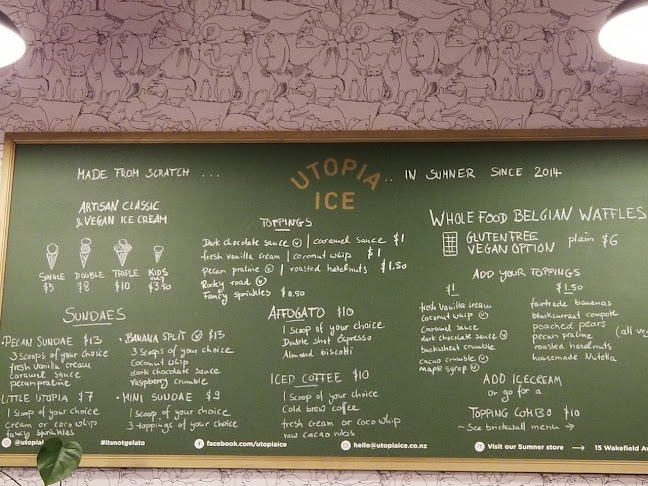 MADE FROM SCRATCH ...
UTOPIA
ICE
.. IN SUMNER SINCE 2014
ARTISAN CLASSIC
& VEGAN ICE CREAM
SINGLE DOUBLE TRIPLE KIDS
$5 $8 $10 $3.50
SUNDAES
• PECAN SUNDAE $13
3 scoops of your choice
fresh vanilla cream
caramel sauce
pecan praline
LITTLE UTOPIA $7
1 scoop of your choice
cream or coco whip
fancy sprinkles
• BANANA SPLIT Ⓥ $13
3 scoops of your choice
coconut whip
dark chocolate sauce
raspberry crumble
• MINI SUNDAE $9
1 scoop of your choice
3 toppings of your choice
TOPPINGS
Dark chocolate sauce Ⓥ | caramel sauce $1
fresh vanilla cream | coconut whip $1
Pecan praline Ⓥ | roasted hazelnuts $1.50
Rocky road Ⓥ
Fancy sprinkles $0.50
AFFOGATO $10
1 scoop of your choice
Double shot espresso
Almond biscotti
ICED COFFEE $10
1 scoop of your choice
Cold brew coffee
fresh cream or coco whip
raw cacao nibs
WHOLE FOOD BELGIAN WAFFLES
GLUTEN FREE
VEGAN OPTION plain $6
ADD YOUR TOPPINGS
$1
fresh vanilla cream
coconut whip Ⓥ
caramel sauce
dark chocolate sauce Ⓥ
buckwheat crumble
cacao crumble Ⓥ
maple syrup Ⓥ
$1.50
fairtrade bananas
blackcurrant compote
poached pears
pecan praline
roasted hazelnuts
housemade Nutella
(all ve
ADD ICECREAM
or go for a
TOPPING COMBO $10
~ See brickwall menu →
@utopia
#itsnotgelato
facebook.com/utopiaice
hello@utopiaice.co.nz
Visit our Sumner store → 15 Wakefield Av